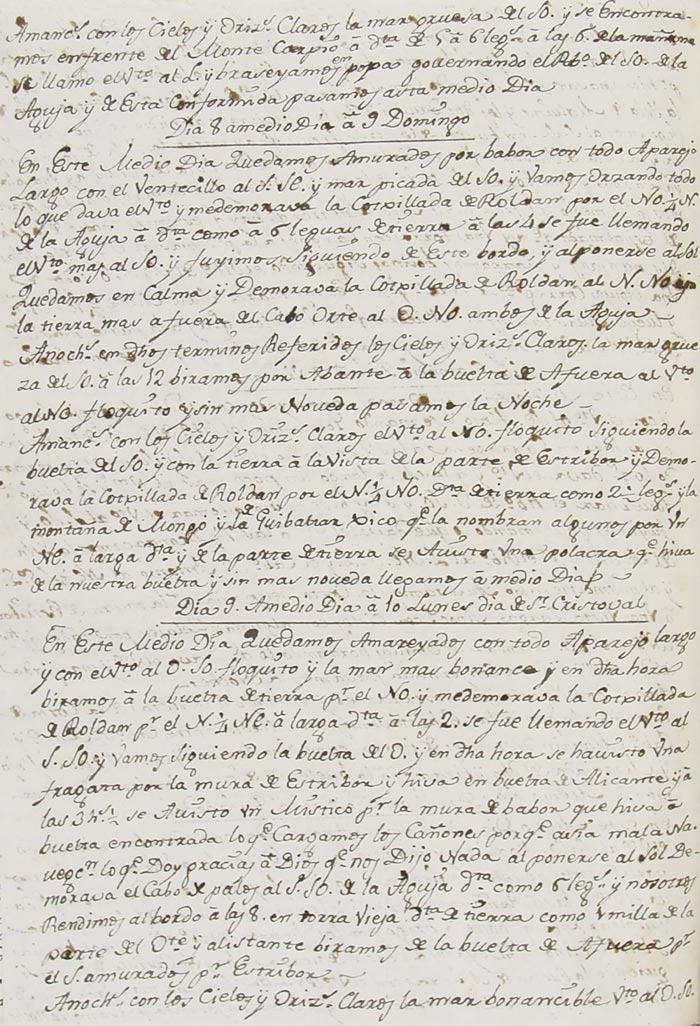 Amanc.s con los Cielos y Oriz.s Claros la mar gruesa del SO. y se Encontra
mos enfrente del Monte Carpio â d.ta de 5 â 6 leg.s â las 6 de la mañana
se llamo el V.to al L. y braseyamos en popa governando el R.bo del SO. de la
Aguja y de Esta Conformida pasamos asta medio Dia
Dia 8 a medio Dia â 9 Domingo
En Este Medio Dia Quedamos Amurados por babor con todo Aparejo
Largo con el Ventecillo al S. SE. y mar picada del SO. y Vamos Orzando todo
lo que dava el V.to y me demorava la Cotxillada de Roldan por el NO.¼N.
de la Aguja â d.ta como â 6 leguas de tierra â las 4 se fue llemando
el V.to mas al SO. y fuyimos siguiendo de Este bordo, y al ponerse al Sol
Quedamos en Calma y Demorava la Cotxillada de Roldan al N. NO. y
la tierra mas afuera del Cabo Orte al O. NO. ambos de la Aguja
Anoch.s en dhos terminos Referidos los Cielos y Oriz.s Claros la mar grue
za del SO. â las 12 biramos por Abante â la buelta de Afuera al V.to
al NO. floquito y sin mas Noveda pasamos la Noche
Amanc.s con los Cielos y Oriz.s Claros el V.to al NO. floquito siguiendo la
buelta del SO. y con la tierra â la Vista de la parte de Estribor y Demo-
rava la Cotxillada de Roldan por el N.¼NO. D.ta de tierra como 2 leg.s y la
montaña de Mongó y la de Guibaltar xico q.e la nombran algunos por Un
NE. â larga d.ta y de la parte de tierra se Avisto Una polacra q.e hiva
de la nuestra buelta y sin mas noveda llegamos â medio Dia
Dia 9. A medio Dia â 10 Lunes dia de S.n Cristoval
En Este Medio Dia Quedamos Amareyados con todo Aparejo largo
y con el V.to al O. SO. floquito y la mar mas bonance y en dha hora
biramos â la buelta de tierra p.r el NO. y me demorava la Cotxillada
de Roldan p.r el N.¼NE. â larga d.ta â las 2. se fue llemando el V.to al
S. SO. y Vamos siguiendo la buelta del O. y en dha hora se ha visto Una
fragata por la mura de Estribor y hiva en buelta de Alicante y â
las 3 h.s ½ se Avisto un Mistico p.r la mura de babor que hiva â
buelta encontrada lo q.e Cargamos los Cañones porq.e avia mala Na-
vegc.n lo q.e Doy gracias â Dios q.e nos Dijo Nada al ponerse al Sol De-
morava el Cabo de palos al S. SO. de la Aguja d.ta como 6 leg.s y nosotros
Rendimos al bordo â las 8. en torra Vieja d.ta de tierra como Vmilla de la
parte del O.te y al istante biramos de la buelta de Afuera p.r
el S. amurados p.r Estribor
Anoch.s con los Cielos y Oriz.s Claros la mar bonancible V.to al O. SO.